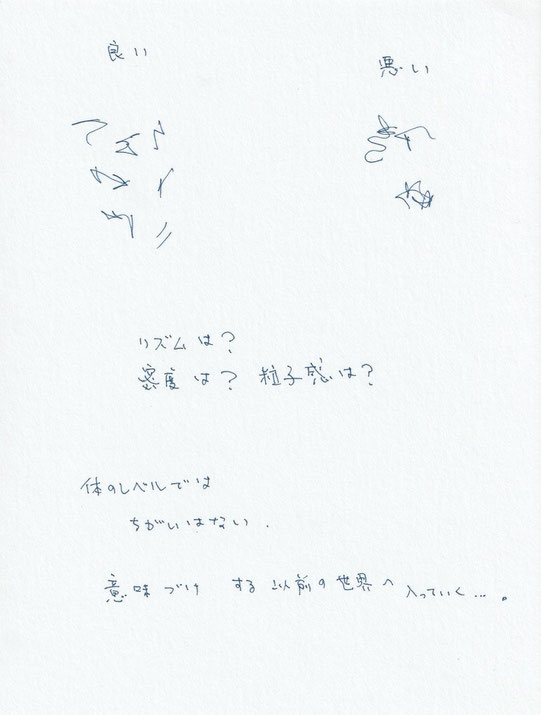 良い
悪い
リズムは?
密度は? 粒子感は?
体のレベルでは
ちがいはない.
意味づけ する 以前の世界へ 入っていく... 。